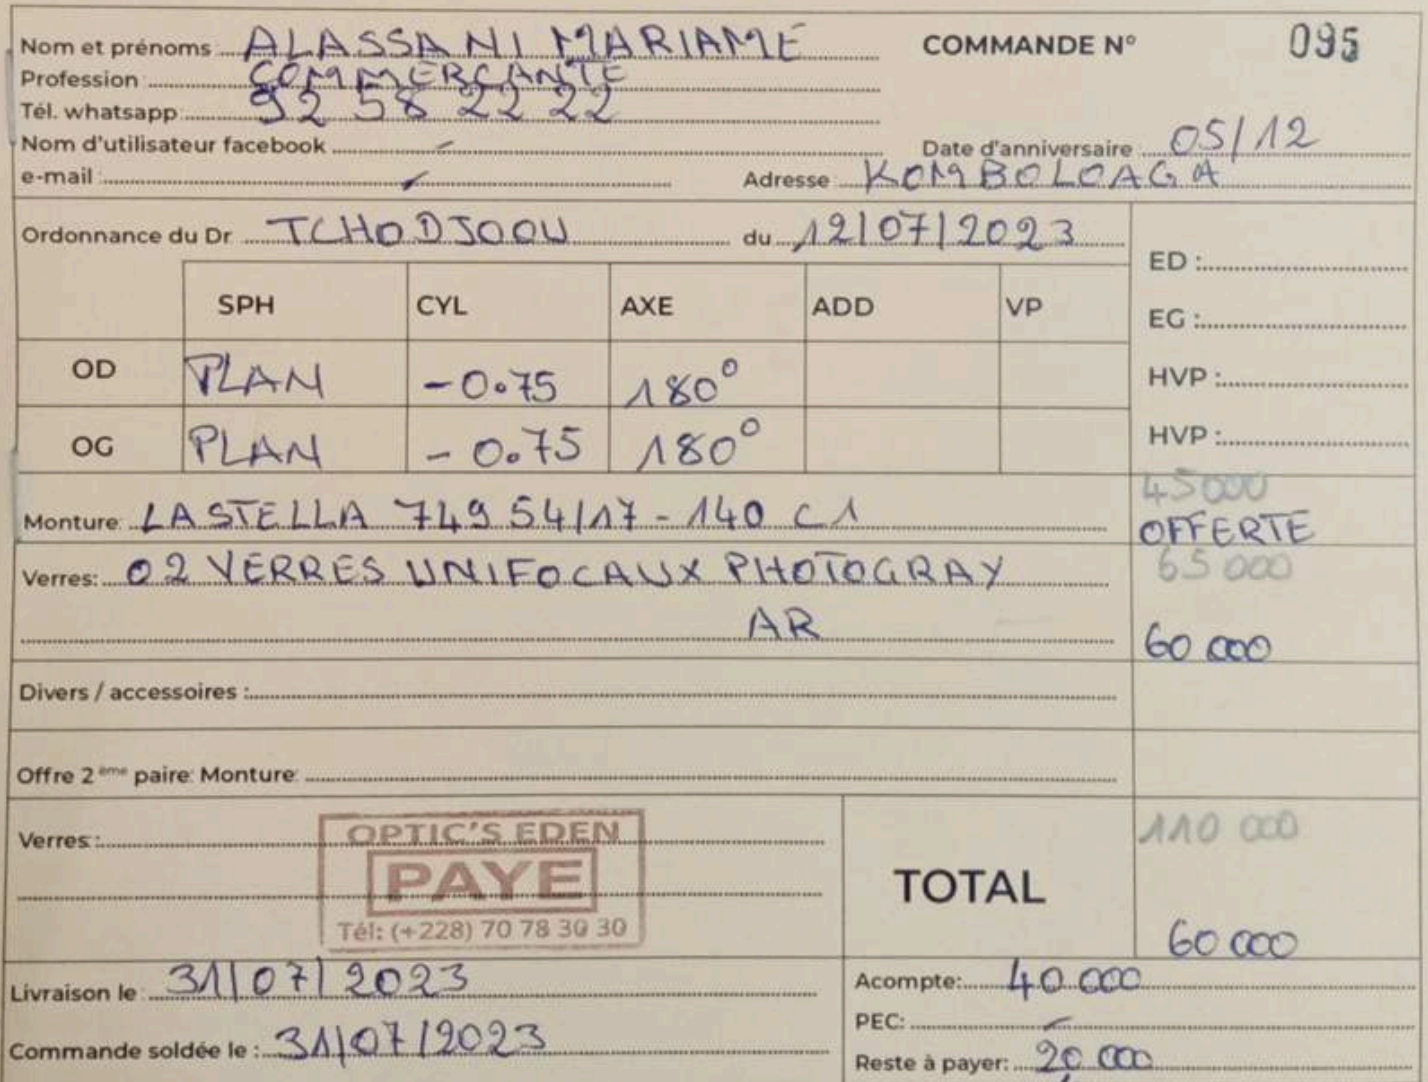 Nom et prénoms ALASSANI MARIAME
COMMANDE N° 095
Profession COMMERCANTE
Tél. whatsapp: 92 58 22 22
Nom d'utilisateur facebook -
Date d'anniversaire 05/12
e-mail :
Adresse KOMBOLOAGA
Ordonnance du Dr TCHODJOOU du 12/07/2023
ED :
SPH CYL AXE ADD VP
EG :
OD PLAN -0.75 180°
HVP :
OG PLAN -0.75 180°
HVP :
45000
Monture: LASTELLA 749 54/17-140 C1
OFFERTE
Verres: 02 VERRES UNIFOCAUX PHOTOGRAY
65 000
AR
60 000
Divers / accessoires :
Offre 2 ème paire: Monture:
Verres :
OPTIC'S EDEN
PAYE
Tél: (+228) 70 78 30 30
TOTAL
110 000
60 000
Livraison le 31/07/2023
Acompte: 40 000
PEC: -
Commande soldée le : 31/07/2023
Reste à payer: 20 000